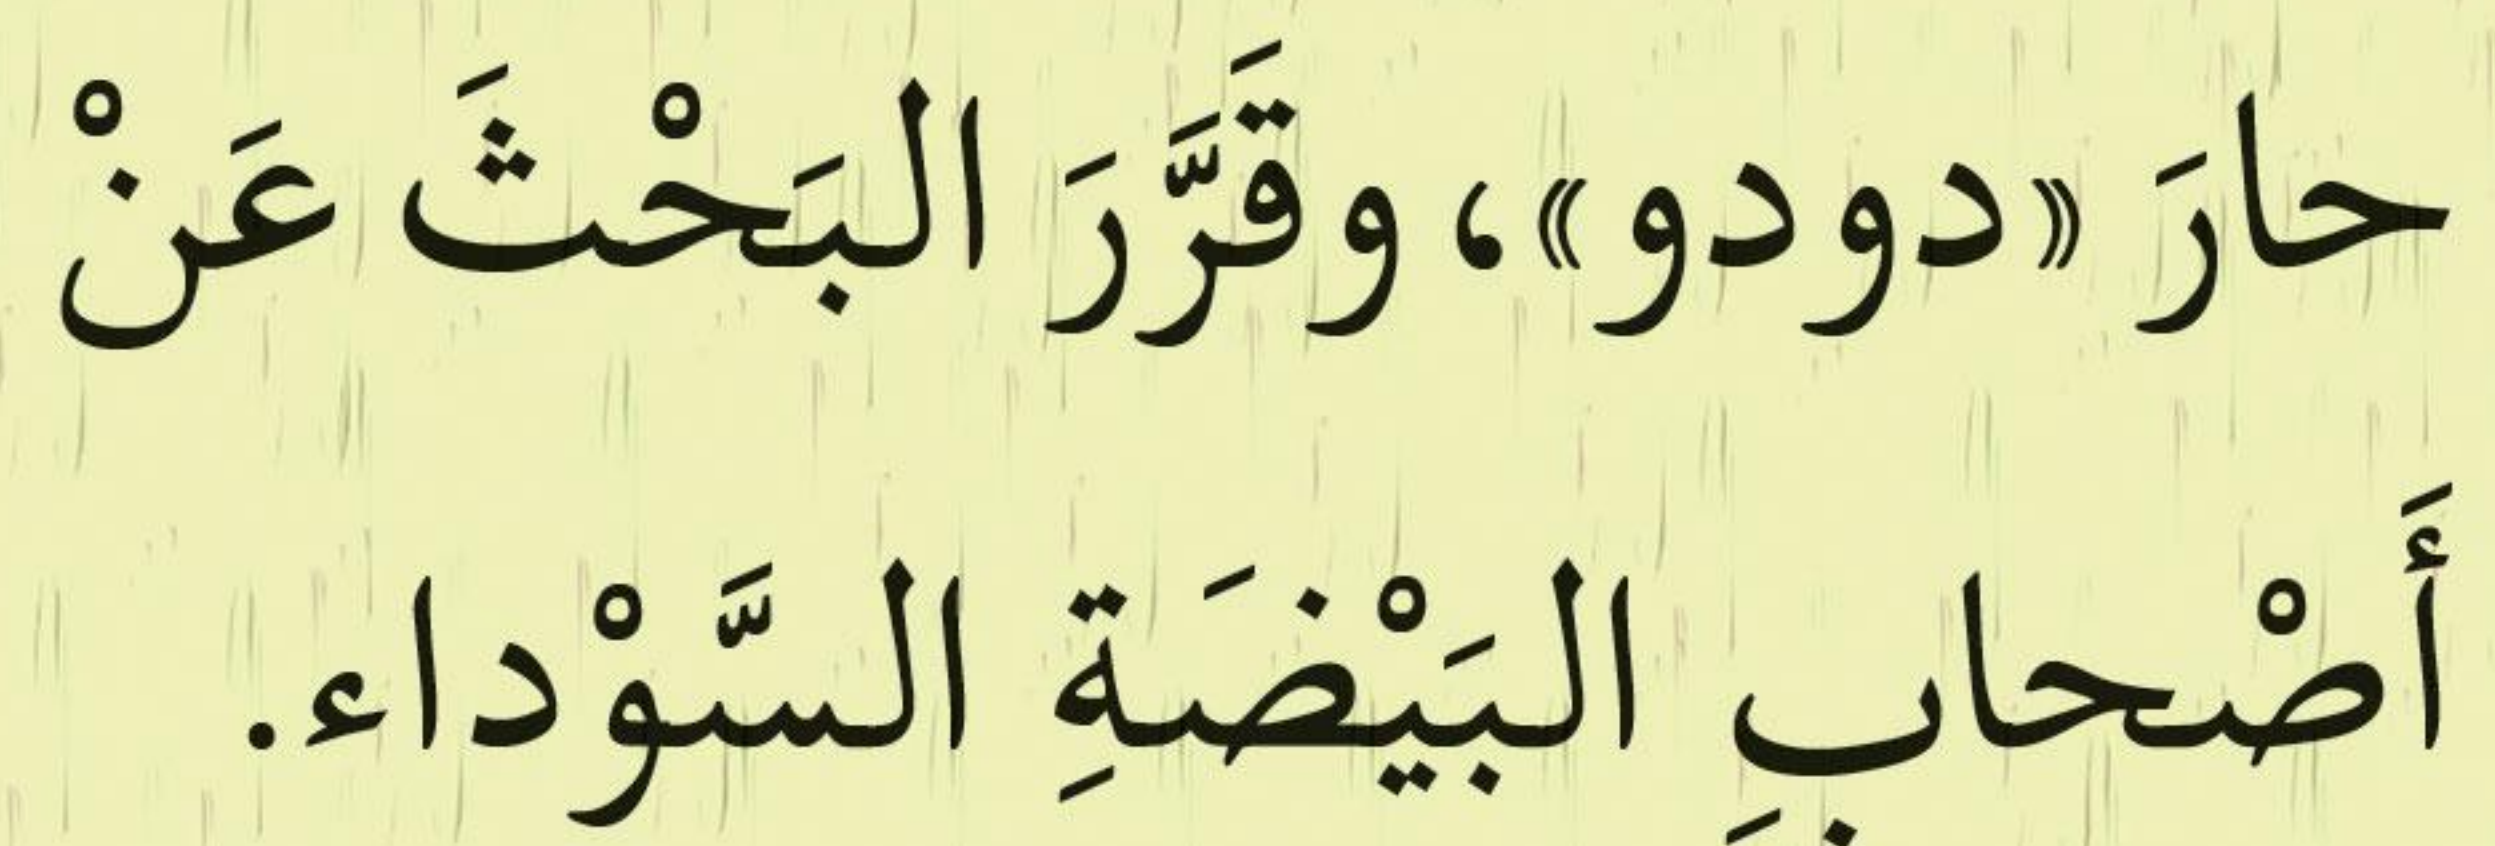 حارَ «دودو»، وقَرَّرَ البَحْثَ عَنْ
أَصْحابِ البَيْضَةِ السَّوْداء.